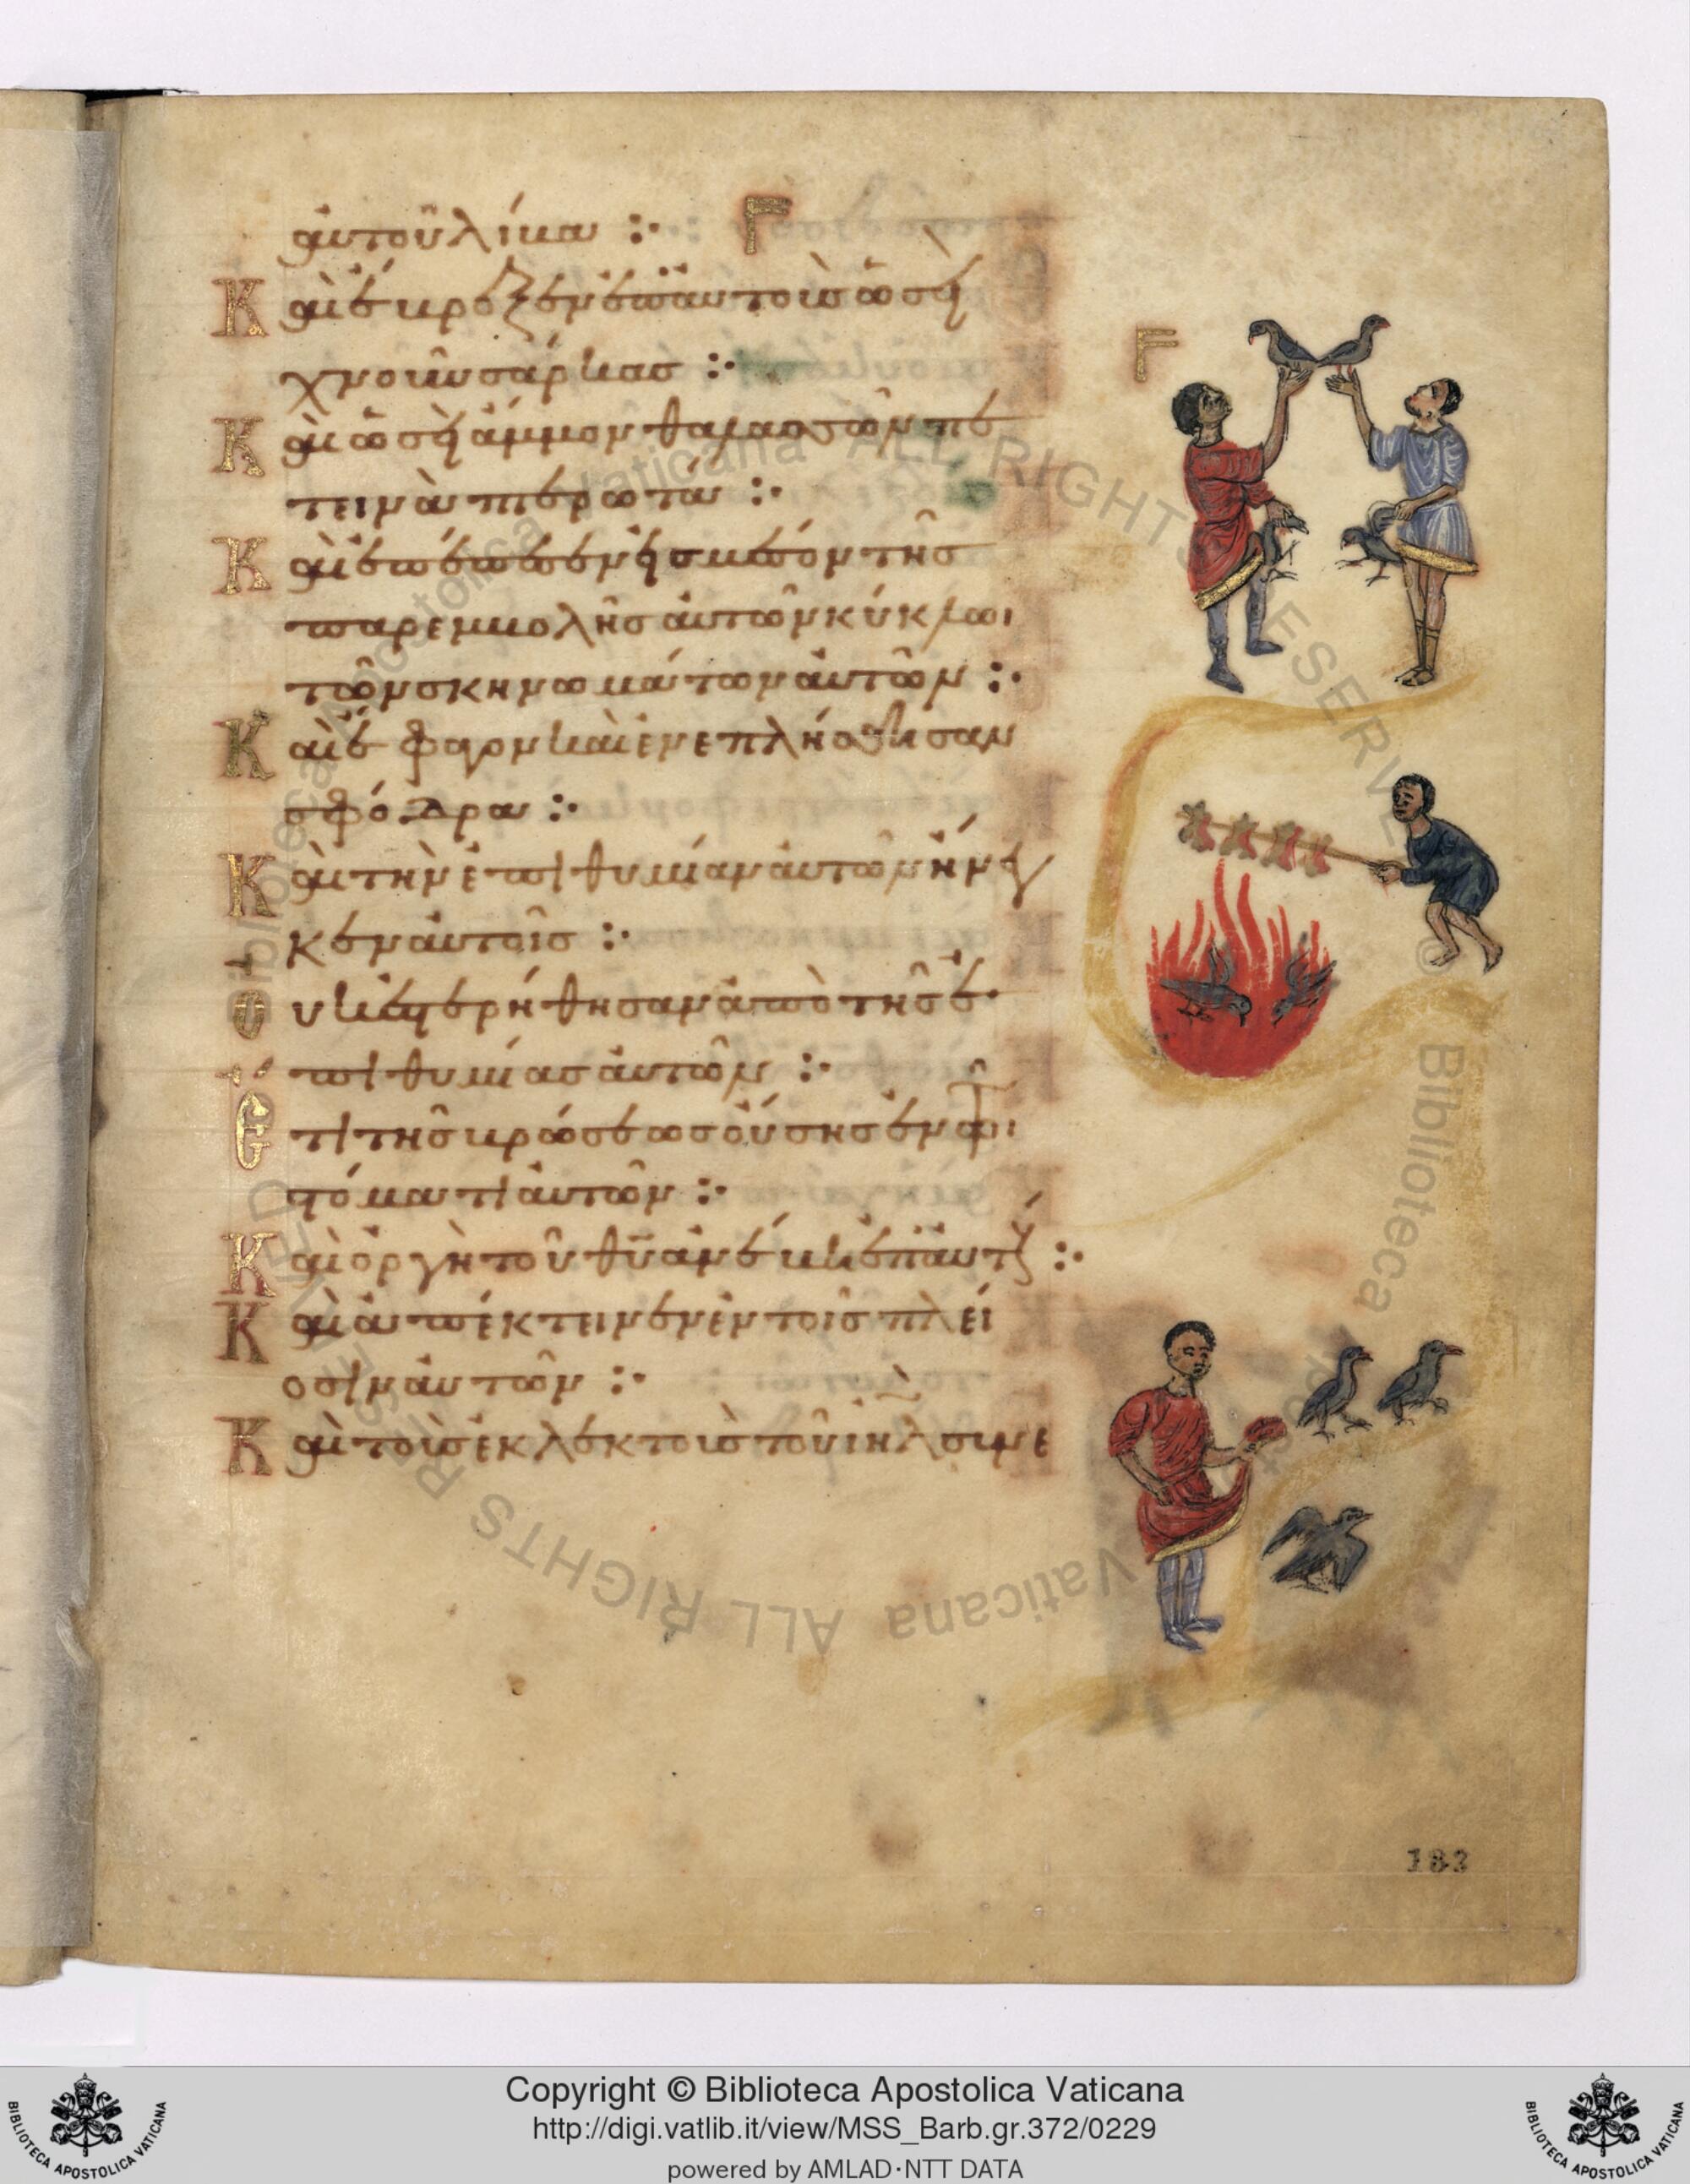 αὐτοῦ λίβα :· Γ
Καὶ ἔβρεξεν ἐπ' αὐτοὺς ὡσεὶ
χνοῦν σάρκας :·
Καὶ ὡσεὶ ἄμμον θαλασσῶν πε
τεινὰ πτερωτά :·
Καὶ ἐπέπεσεν εἰς μέσον τῆς
παρεμβολῆς αὐτῶν κύκλωι
τῶν σκηνωμάτων αὐτῶν :·
Καὶ ἔφαγον καὶ ἐνεπλήσθησαν
σφόδρα :·
Καὶ τὴν ἐπιθυμίαν αὐτῶν ἤνεγ
κεν αὐτοῖς :·
Οὐκ ἐστερήθησαν ἀπὸ τῆς ἐ
πιθυμίας αὐτῶν :·
Ἔτι τῆς βρώσεως οὔσης ἐν τῶι
στόματι αὐτῶν :·
Καὶ ὀργὴ τοῦ θῦ ἀνέβη ἐπ' αὐτούς :·
Καὶ ἀπέκτεινεν ἐν τοῖς πλεί
οσιν αὐτῶν :·
Καὶ τοὺς ἐκλεκτοὺς τοῦ ιηλ συνε
Γ
183
© Biblioteca Apostolica Vaticana ALL RIGHTS RESERVED
© Biblioteca Apostolica Vaticana ALL RIGHTS RESERVED
Copyright © Biblioteca Apostolica Vaticana
http://digi.vatlib.it/view/MSS_Barb.gr.372/0229
powered by AMLAD·NTT DATA
BIBLIOTECA APOSTOLICA VATICANA
BIBLIOTECA APOSTOLICA VATICANA